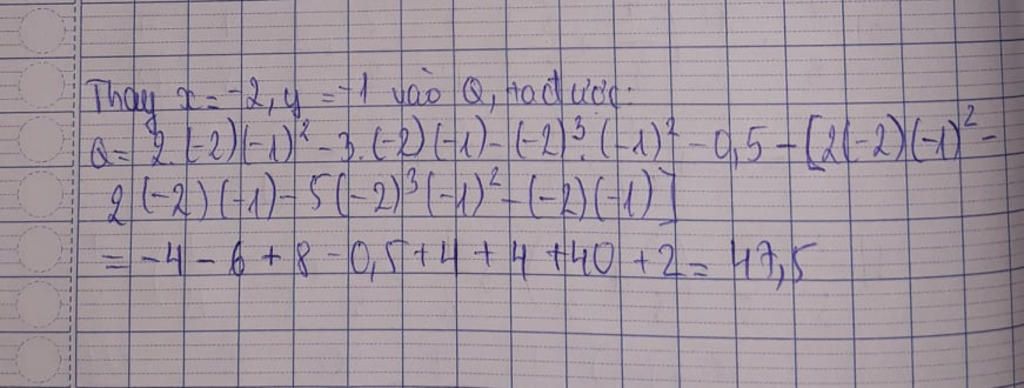 Thay x = -2, y = -1 vào Q, ta được:
Q = 2.(-2)(-1)² - 3.(-2)(-1) - (-2)³.(-1)² - 0,5 - [2(-2)(-1)² -
2(-2)(-1) - 5(-2)³(-1)² - (-2)(-1)]
= -4 - 6 + 8 - 0,5 + 4 + 4 + 40 + 2 = 47,5